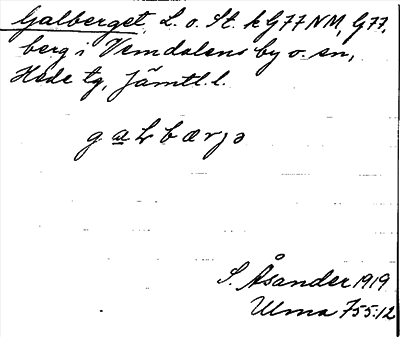 Galberget, L. o. St. k G77 NM, G77,
berg i Vemdalens by o. sn,
Hede tg, Jämtl. l.
S. Åsander 1919
Ulma 755:12